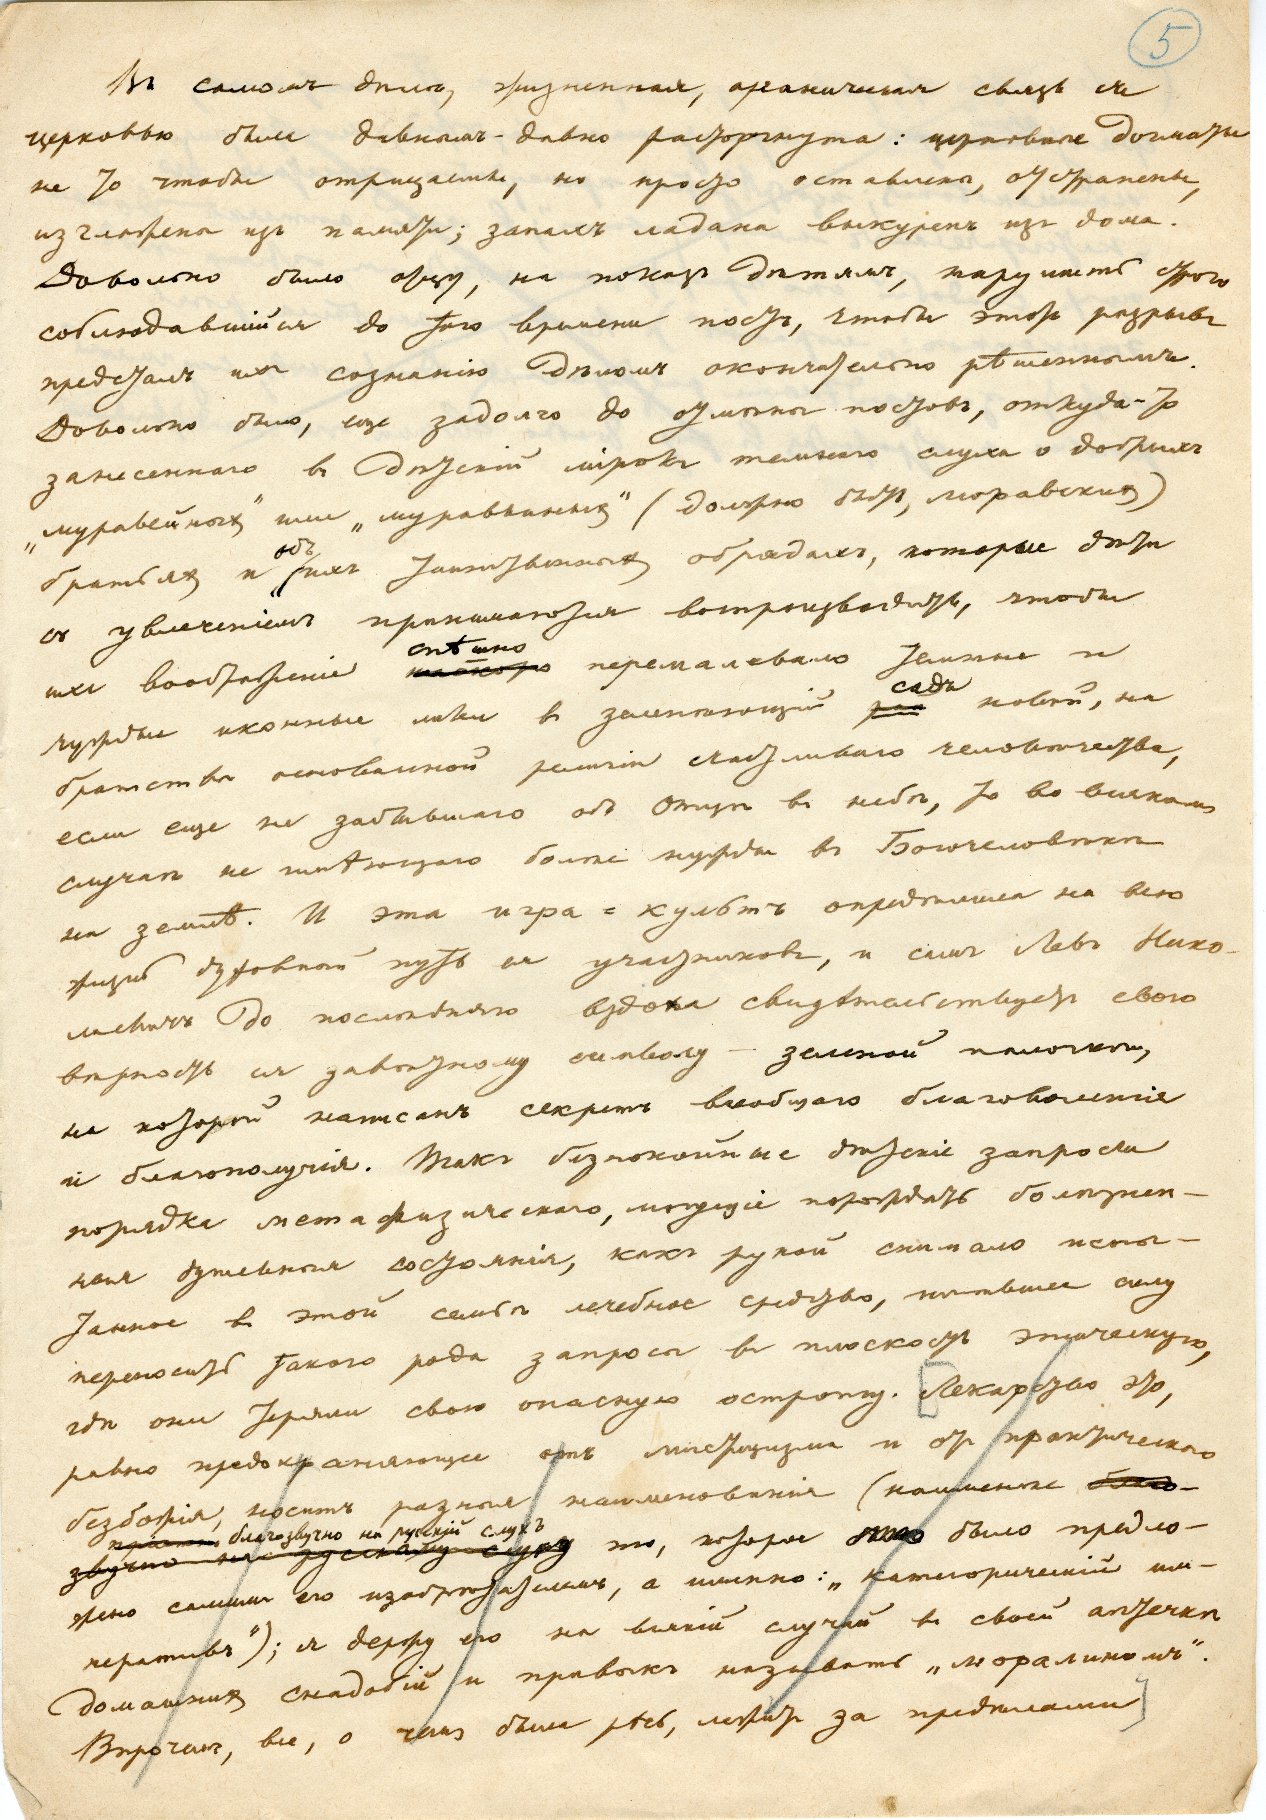 5
Въ самомъ дѣлѣ, жизненная, органическая связь съ
церковью была давнымъ-давно расторгнута: церковные догматы
не то чтобы отрицаемы, но просто оставлены, отстранены,
изглажены изъ памяти; запахъ ладана выкуренъ изъ дома.
Довольно было отцу, на показъ дѣтямъ, нарушить строго
соблюдавшійся до того времени постъ, чтобы этотъ разрывъ
предсталъ ихъ сознанію дѣломъ окончательно рѣшеннымъ.
Довольно было, еще задолго до отмѣны постовъ, откуда-то
занесеннаго въ дѣтскій мірокъ темнаго слуха о добрыхъ
„муравейныхъ" или „муравкиныхъ" (должно быть, моравскихъ)
братьяхъ и объ ихъ таинственныхъ обрядахъ, которые дѣти
съ увлеченіемъ принимаются воспроизводить, чтобы
спѣшно
ихъ воображеніе наскоро перемалевало темные и
садъ
чуждые иконные лики въ зеленѣющій рай новой, на
братствѣ основанной религіи счастливаго человѣчества,
если еще не забывшаго объ Отцѣ въ небѣ, то во всякомъ
случаѣ не имѣющаго болѣе нужды въ Богочеловѣкѣ
на землѣ. И эта игра = культъ опредѣлила на всю
жизнь духовный путь ея участниковъ, и самъ Левъ Нико-
лаевичъ до послѣдняго вздоха свидѣтельствуетъ свою
вѣрность ея завѣтному символу – зеленой палочкѣ,
на которой написанъ секретъ всеобщаго благоволенія
и благополучія. Такъ безпокойные дѣтскіе запросы
порядка метафизическаго, могущіе порождать болѣзнен-
ныя душевныя состоянія, какъ рукой снимало испы-
танное въ этой семьѣ лечебное средство, имѣвшее силу
переносить такого рода запросы въ плоскость этическую,
гдѣ они теряли свою опасную остроту. [Лекарство это,
равно предохраняющее отъ мистицизма и отъ практическаго
безбожія, носитъ разныя наименованія (наименѣе благо-
благозвучно на русскій слухъ
звучно на русскому слуху то, которое было предло-
жено самимъ его изобрѣтателемъ, а именно: „категорическій им-
перативъ"); я держу его на всякій случай въ своей аптечкѣ
домашнихъ снадобій и привыкъ называть „моралиномъ".
Впрочемъ, все, о чемъ была рѣчь, лежитъ за предѣлами]